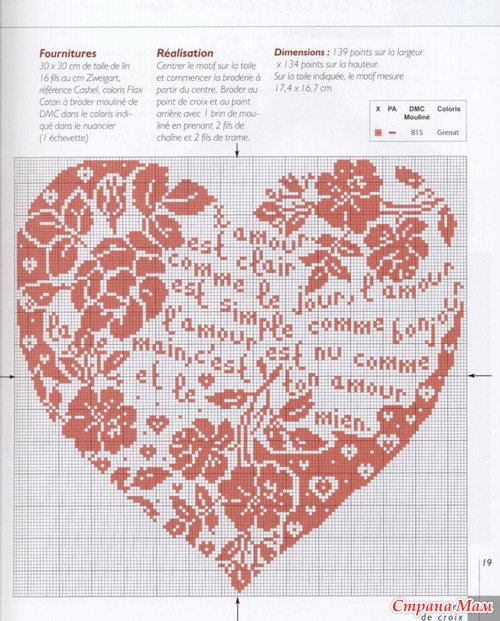 Fournitures
30 x 30 cm de toile de lin
16 fils au cm Zweigart,
référence Cashel, coloris Flax
Coton à broder mouliné de
DMC dans le coloris indi-
qué dans le nuancier
(1 échevette)
Réalisation
Centrer le motif sur la toile
et commencer la broderie à
partir du centre. Broder au
point de croix et au point
arrière avec 1 brin de mou-
liné en prenant 2 fils de
chaîne et 2 fils de trame.
Dimensions : 139 points sur la largeur
x 134 points sur la hauteur.
Sur la toile indiquée, le motif mesure
17,4 x 16,7 cm
X PA DMC Mouliné Coloris
815 Grenat
l'amour
est clair
comme le jour, l'amour
est simple comme bonjour
l'amour est nu comme
la main, c'est ton amour
et le mien.
19
Страна Мам
de croix